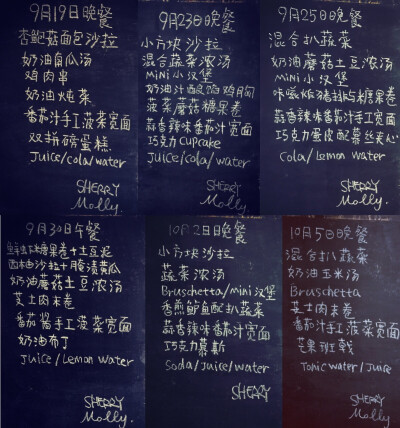 9月19日晚餐
杏鲍菇面包沙拉
奶油南瓜汤
鸡肉串
奶油炖菜
番茄汁手工菠菜宽面
双拼磅蛋糕
Juice/cola/water
SHERRY
Molly.
9月23日晚餐
小方块沙拉
混合蔬菜浓汤
mini小汉堡
奶油汁
菠菜蘑菇糖果卷
蒜香辣味番茄汁宽面
巧克力cupcake
Juice/cola/water
SHERRY
Molly.
9月25日晚餐
混合扒蔬菜
奶油蘑菇土豆浓汤
mini小汉堡
咖喱炸猪排与糖果卷
蒜香辣味番茄汁手工宽面
巧克力蛋皮配慕丝夹心
Cola/Lemon water
SHERRY
Molly.
9月30日午餐
糖果卷+土豆泥
沙拉+腌渍黄瓜
奶油蘑菇土豆浓汤
芝士肉末卷
番茄酱手工菠菜宽面
奶油布丁
Juice/Lemon water
SHERRY
Molly.
10月2日晚餐
小方块沙拉
蔬菜浓汤
Bruschetta/mini汉堡
香煎鲈鱼配扒蔬菜
蒜香辣味番茄汁宽面
巧克力慕斯
Soda/juice/water
SHERRY
10月5日晚餐
混合扒蔬菜
奶油玉米汤
Bruschetta
芝士肉末卷
番茄汁手工菠菜宽面
芒果班戟
Tonic water/Juice
SHERRY
Molly.